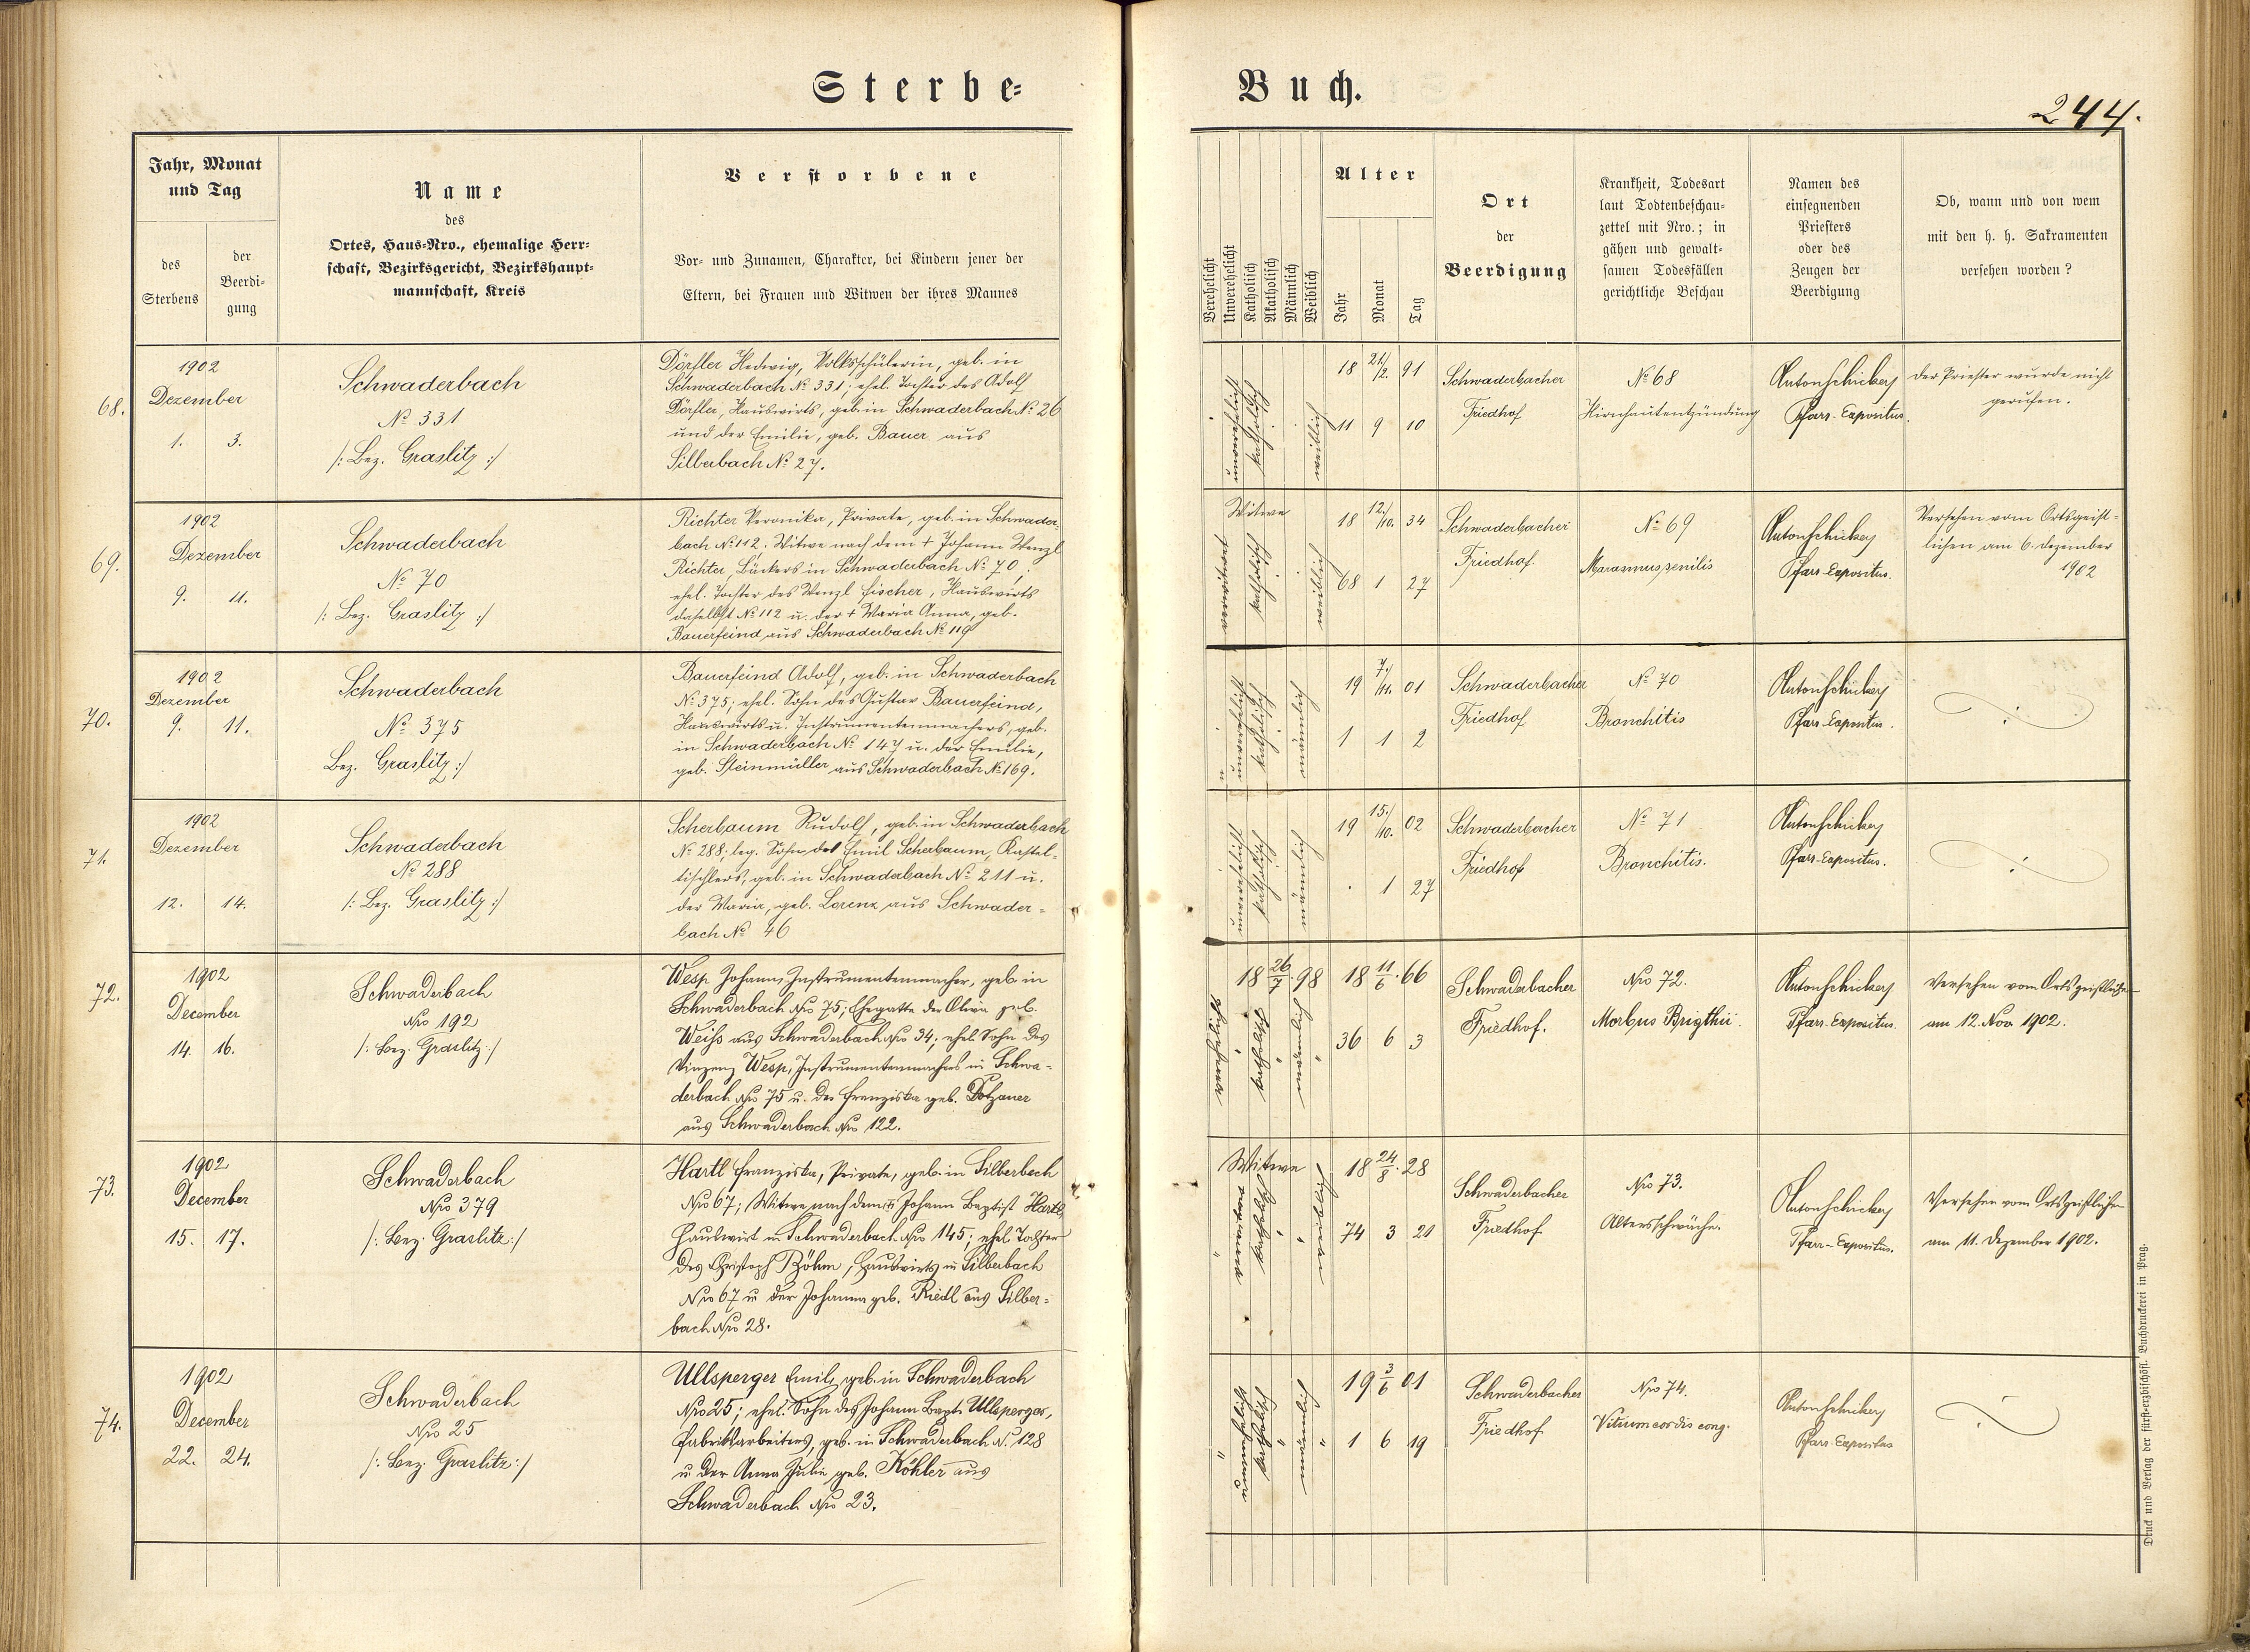 Sterbe-
Buch.
244.
Jahr, Monat
und Tag
des
Sterbens
der
Beerdi-
gung
Name
des
Ortes, Haus-Nro., ehemalige Herr-
schaft, Bezirksgericht, Bezirkshaupt-
mannschaft, Kreis
Verstorbene
Vor- und Zunamen, Charakter, bei Kindern jener der
Eltern, bei Frauen und Witwen der ihres Mannes
Verehelicht
Unverehelicht
Katholisch
Akatholisch
Männlich
Weiblich
Alter
Jahr
Monat
Tag
Ort
der
Beerdigung
Krankheit, Todesart
laut Todtenbeschau-
zettel mit Nro.; in
gähen und gewalt-
samen Todesfällen
gerichtliche Beschau
Namen des
einsegnenden
Priesters
oder des
Zeugen der
Beerdigung
Ob, wann und von wem
mit den h. h. Sakramenten
versehen worden?
68.
1902
Dezember
1. 3.
Schwaderbach
№ 331
/: Bez. Graslitz :/
Dörfler Hedwig, Volksschülerin, geb. in
Schwaderbach № 331; ehel. Tochter des Adolf
Dörfler, Hauswirts, geb. in Schwaderbach № 26
und der Emilie, geb. Bauer aus
Silberbach № 27.
unverehelicht
katholisch
weiblich
18 21./2. 91
11 9 10
Schwaderbacher
Friedhof
№ 68
Hirnhautentzündung
Anton Schickerj
Pfarr-Expositus.
Der Priester wurde nicht
gerufen.
69.
1902
Dezember
9. 11.
Schwaderbach
№ 70
/: Bez. Graslitz :/
Richter Veronika, Private, geb. in Schwader-
bach № 112, Witwe nach dem + Johann Wenzl
Richter, Bäckers in Schwaderbach № 70;
ehel. Tochter des Wenzl Fischer, Hauswirts
daselbst № 112 u. der + Maria Anna, geb.
Bauerfeind aus Schwaderbach № 119
Witwe
verwitwet
katholisch
weiblich
18 12./10. 34
68 1 27
Schwaderbacher
Friedhof
№ 69
Marasmus senilis
Anton Schickerj
Pfarr-Expositus.
Versehen vom Ortsgeist-
lichen am 6. Dezember
1902
70.
1902
Dezember
9. 11.
Schwaderbach
№ 375
Bez. Graslitz :/
Bauerfeind Adolf, geb. in Schwaderbach
№ 375; ehel. Sohn des Gustav Bauerfeind,
Hauswirts u. Instrumentenmachers, geb.
in Schwaderbach № 147 u. der Emilie,
geb. Steinmüller aus Schwaderbach № 169.
unverehelicht
katholisch
männlich
19 7./11. 01
1 1 2
Schwaderbacher
Friedhof
№ 70
Bronchitis
Anton Schickerj
Pfarr-Expositus.
71.
1902
Dezember
12. 14.
Schwaderbach
№ 288
/: Bez. Graslitz :/
Scherbaum Rudolf, geb. in Schwaderbach
№ 288; leg. Sohn des Emil Scherbaum, Kastel-
tischlers, geb. in Schwaderbach № 211 u.
der Maria, geb. Lorenz aus Schwader-
bach № 46
unverehelicht
katholisch
männlich
19 15./10. 02
. 1 27
Schwaderbacher
Friedhof
№ 71
Bronchitis.
Anton Schickerj
Pfarr-Expositus.
72.
1902
December
14. 16.
Schwaderbach
Nro 192
/: Bez. Graslitz :/
Wesp Johann, Instrumentenmacher, geb. in
Schwaderbach Nro 75; Ehegatte der Oliva geb.
Weiß aus Schwaderbach Nro 34; ehel. Sohn des
Vinzenz Wesp, Instrumentenmachers in Schwa-
derbach Nro 75 u. der Franziska geb. Dotzauer
aus Schwaderbach Nro 122.
18 26/7. 98
verehelicht
katholisch
männlich
18 11/6. 66
36 6 3
Schwaderbacher
Friedhof.
Nro 72.
Morbus Brigthii.
Anton Schickerj
Pfarr-Expositus.
Versehen vom Ortsgeistlichen
am 12. Nov. 1902.
73.
1902
December
15. 17.
Schwaderbach
Nro 379
/: Bez. Graslitz :/
Hartl Franziska, Private, geb. in Silberbach
Nro 67; Witwe nach dem Johann Baptist Hartl,
Hauswirt in Schwaderbach Nro 145; ehel. Tochter
des Christoph Böhm, Hauswirts in Silberbach
Nro 67 u. der Johanna geb. Riedl aus Silber-
bach Nro 28.
Witwe
verwitwet
katholisch
weiblich
18 24/8. 28
74 3 21
Schwaderbacher
Friedhof
Nro 73.
Altersschwäche.
Anton Schickerj
Pfarr-Expositus.
Versehen vom Ortsgeistlichen
am 11. Dezember 1902.
74.
1902
December
22. 24.
Schwaderbach
Nro 25
/: Bez. Graslitz :/
Ullsperger Emil, geb. in Schwaderbach
Nro 25; ehel. Sohn des Johann Bapt. Ullsperger,
Fabriksarbeiters, geb. in Schwaderbach N. 128
u. der Anna Julie geb. Köhler aus
Schwaderbach Nro 23.
unverehelicht
katholisch
männlich
19 3/6 01
1 6 19
Schwaderbacher
Friedhof
Nro 74.
Vitium cordis cong.
Anton Schickerj
Pfarr-Expositus
Druck und Verlag der fürst-erzbischöfl. Buchdruckerei in Prag.